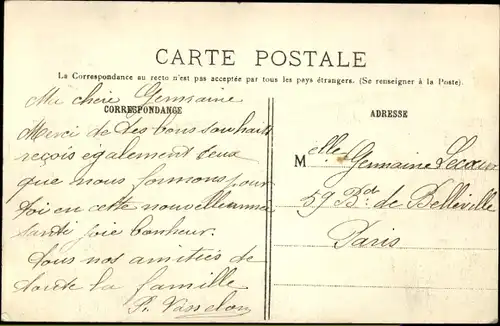 CARTE POSTALE
La Correspondance au recto n'est pas acceptée par tous les pays étrangers. (Se renseigner à la Poste).
CORRESPONDANCE
Ma chère Germaine
Merci de tes bons souhaits
reçois également ceux
que nous formons pour
toi en cette nouvelle année
santé joie bonheur.
Tous nos amitiés de
toute la famille
ADRESSE
Melle Germaine
59 Bd. de Belleville
Paris